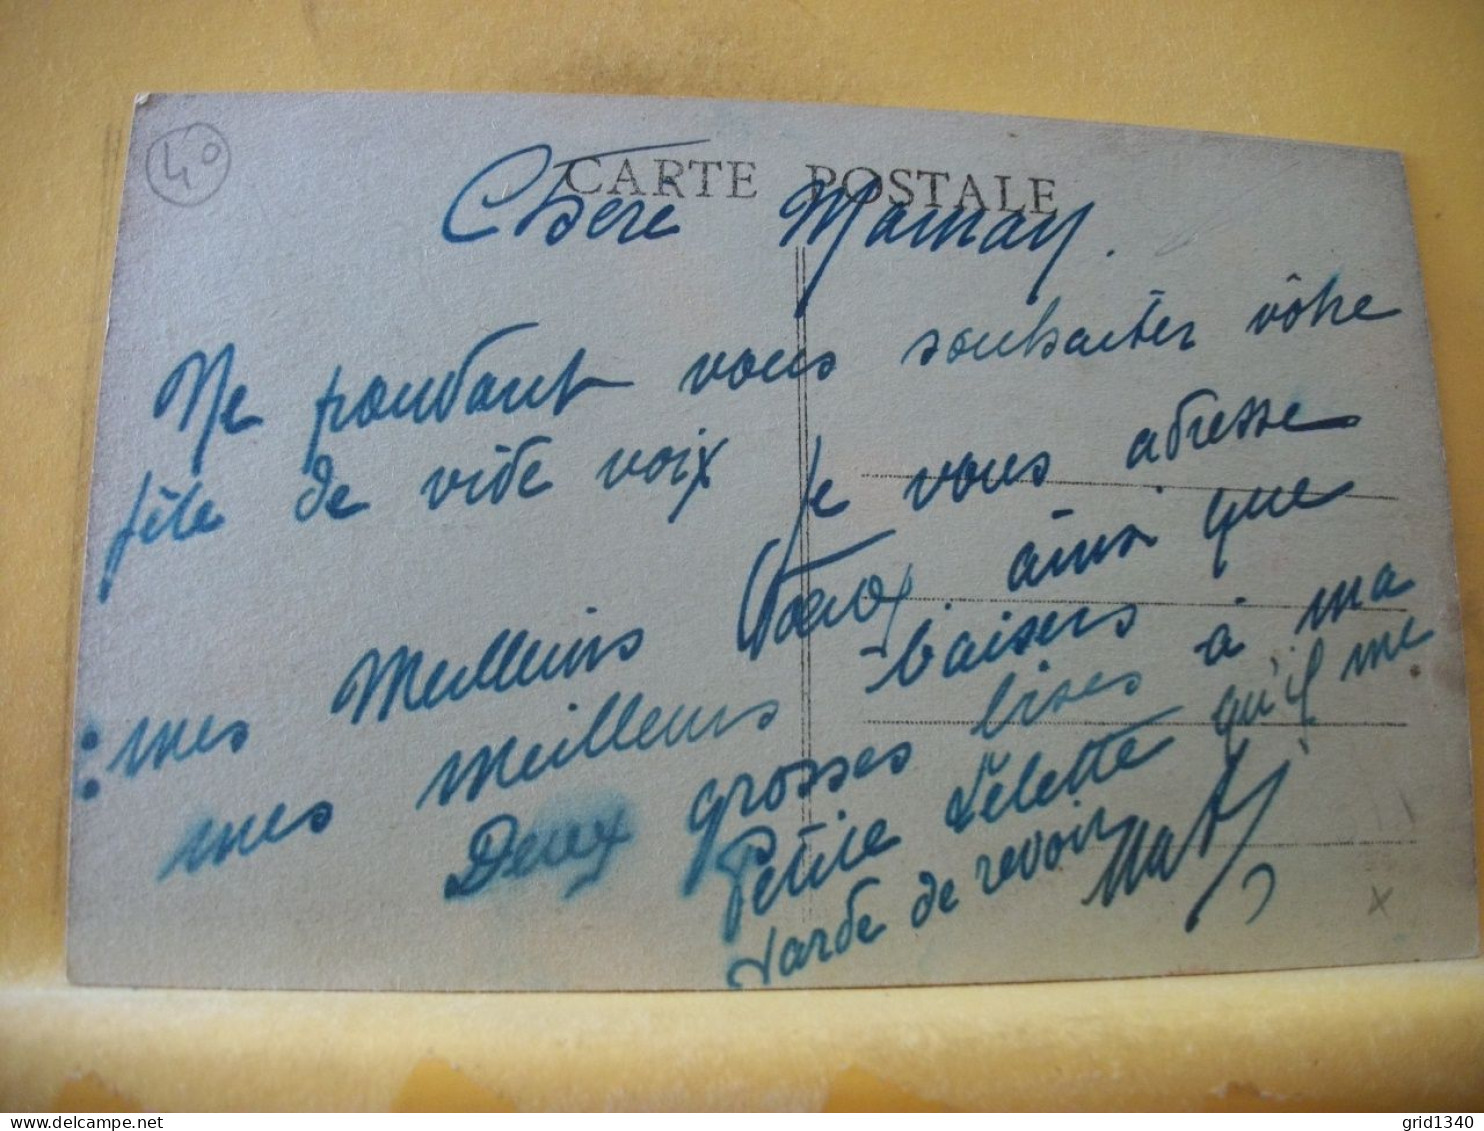 40
CARTE POSTALE
Chère Maman.
Ne pouvant vous souhaiter vôtre
fête de vive voix Je vous adresse
mes Meilleurs Vœux ainsi que
mes meilleurs baisers
Deux grosses bises à ma
Petite Lélette qu'il me
tarde de revoir
x
grid1340